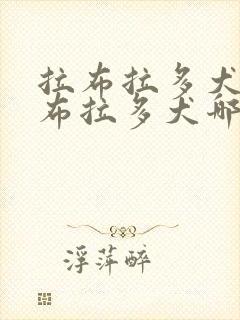 拉布拉多犬
布拉多犬哪
浮萍醉